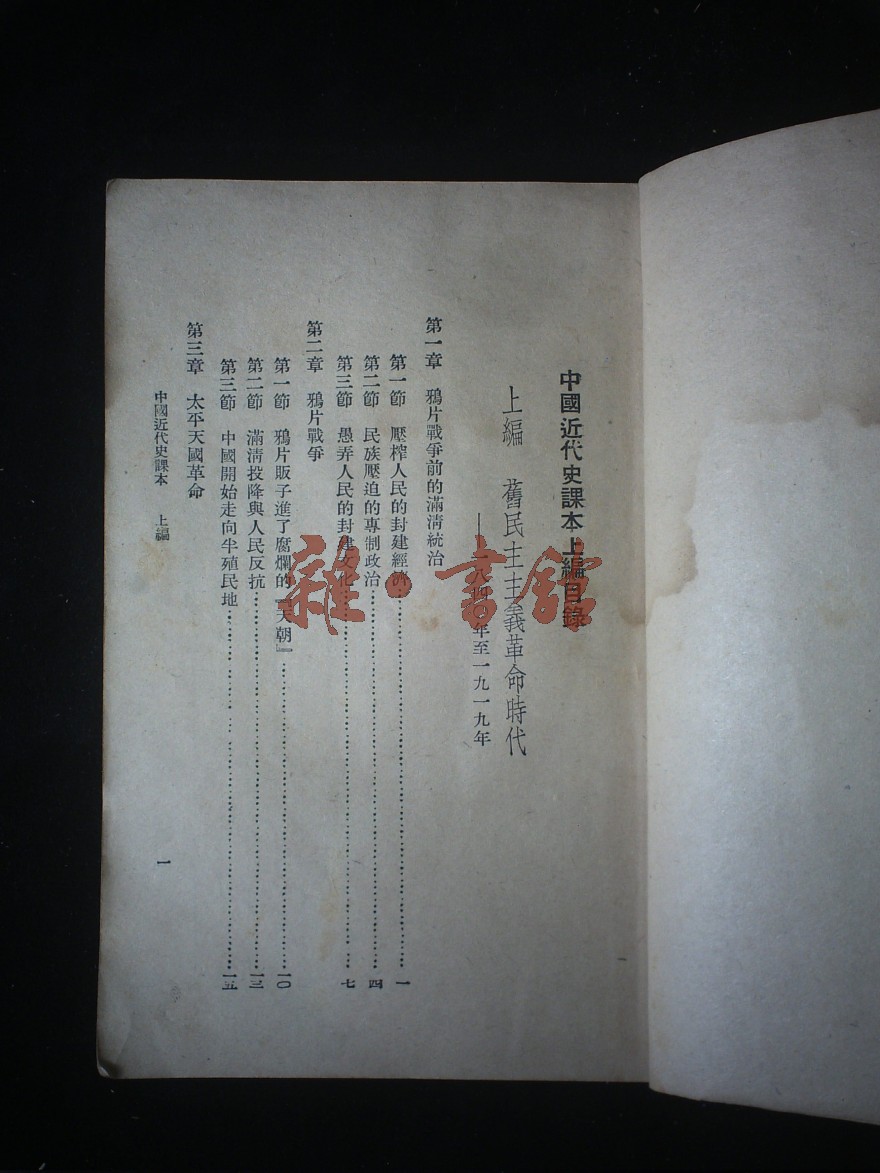 中國近代史課本上編目錄
上編　舊民主主義革命時代
——一八四〇年至一九一九年
第一章　鴉片戰爭前的滿淸統治
第一節　壓榨人民的封建經濟……一
第二節　民族壓迫的專制政治……四
第三節　愚弄人民的封建文化……七
第二章　鴉片戰爭
第一節　鴉片販子進了腐爛的『天朝』……一〇
第二節　滿淸投降與人民反抗……一三
第三節　中國開始走向半殖民地……一五
第三章　太平天國革命
中國近代史課本　上編
一
雜·書館